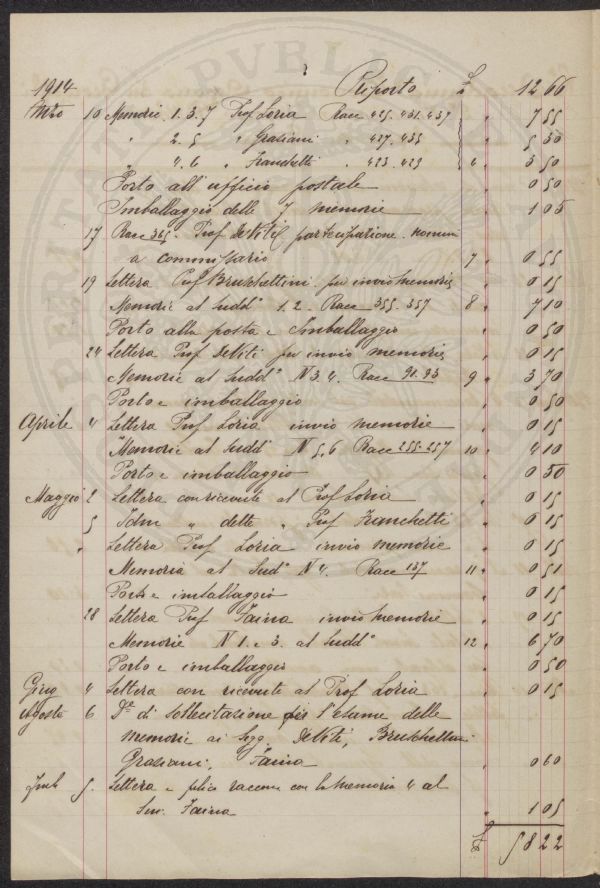 1914 Riporto £ 12 66
Mzo 10 Memorie 1. 3. 7 Prof Loria Racc 425. 431. 437 " 7 55
" 2. 5 " Graziani " 427. 435 " 5 30
" 4. 6 " Franchetti " 423. 429 6 " 3 50
Porto all'ufficio postale " 0 50
Imballaggio delle 7 memorie " 1 05
17 Racc 365. Prof DeViti partecipazione nomina
a commissario 7 " 0 55
19 Lettera Prof Bruschettini per invio memorie " 0 15
Memorie al sudd° 1. 2. Racc 355. 357 8 " 7 10
Porto alla posta e Imballaggio " 0 50
24 Lettera Prof DeViti per invio memorie " 0 15
Memorie al sudd° N 3. 4. Racc 91. 93 9 " 3 70
Porto e imballaggio " 0 50
Aprile 4 Lettera Prof Loria invio memorie " 0 15
Memorie al sudd° N 5, 6 Racc 255-257 10 " 4 10
Porto e imballaggio " 0 50
Maggio 2 Lettera con ricevute al Prof Loria " 0 15
5 Idm " dette " Prof Franchetti " 0 15
" Lettera Prof Loria invio memorie " 0 15
Memoria al Sud° N 4. Racc 137 11 " 0 51
Porto e imballaggio " 0 15
28 Lettera Prof Faina invio memorie " 0 15
Memorie N 1. e 3. al sudd° 12 " 6 70
Porto e imballaggio " 0 50
Giug 4 Lettera con ricevute al Prof Loria " 0 15
Agosto 6 D° di sollecitazione per l'esame delle
memorie ai Sigg. DeViti, Bruschettini
Graziani, Faina " 0 60
5. Lettera e plico raccom con la Memoria 4 al
Sen. Faina " 1 05
£ 58 22